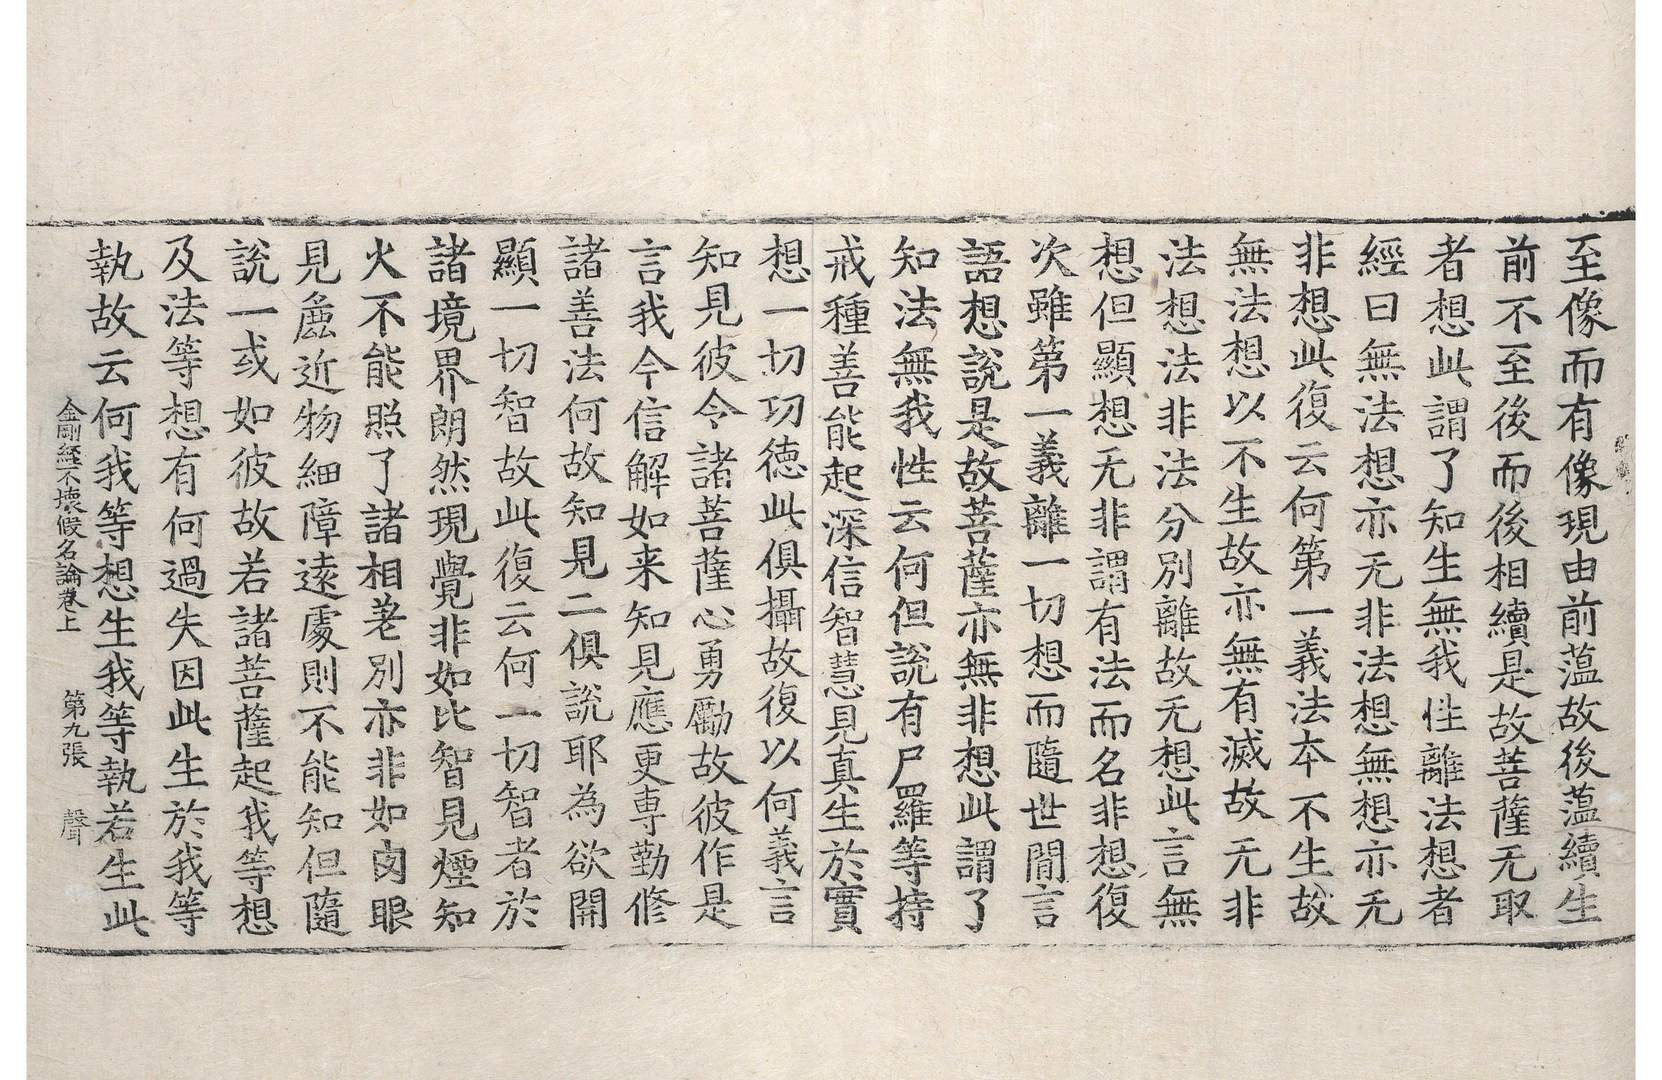 至像而有像現由前薀故後薀續生
前不至後而後相續是故菩薩无取
者想此謂了知生無我性離法想者
經曰無法想亦无非法想無想亦无
非想此復云何第一義法本不生故
無法想以不生故亦無有滅故无非
法想法非法分別離故无想此言無
想但顯想无非謂有法而名非想復
次雖第一義離一切想而隨世間言
語想說是故菩薩亦無非想此謂了
知法無我性云何但說有尸羅等持
戒種善能起深信智慧見真生於實
想一切功德此俱攝故復以何義言
知見彼令諸菩薩心勇勵故彼作是
言我今信解如来知見應更専勤修
諸善法何故知見二俱說耶為欲開
顯一切智故此復云何一切智者於
諸境界朗然現覺非如比智見煙知
火不能照了諸相差別亦非如肉眼
見麁近物細障遠處則不能知但隨
說一或如彼故若諸菩薩起我等想
及法等想有何過失因此生於我等
執故云何我等想生我等執若生此
金剛經不壞假名論卷上　第九張　聲